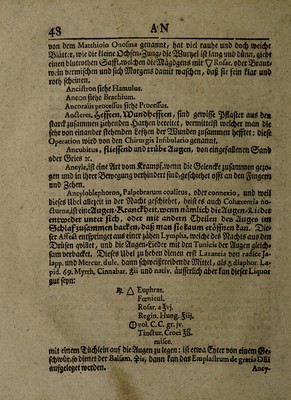 48 AN
von dem Matthiolo Onosina genannt, hat viel rauhe und doch weiche
Blätter, wie die kleine Ochsen-Zung, die Wurtzel ist lang und dünn, giebt
einen blutrothen Safft, welchen die Mägdgens mit ▽ Rosar. oder Brant-
wein vermischen und sich Morgens damit waschen, daß sie fein klar und
roth scheinen.
Ancistron siehe Hamulus.
Ancon siehe Brachium.
Ancoralis processus siehe Processus.
Ancteres, Hefften, Wundhefften, sind gewisse Pflaster aus den
starck zusammen ziehenden Hartzen bereitet, vermittelst welcher man die
sehr von einander stehenden Lefftzen der Wunden zusammen hefftet: diese
Operation wird von den Chirurgis Insibulatio genannt.
Ancubitus, fliessende und trübe Augen, von eingefallenen Sand
oder Gries ꝛc.
Ancyle, ist eine Art von Krampf, wenn die Gelencke zusammen gezo-
gen und in ihrer Bewegung verhindert sind, geschiehet offt an den Fingern
und Zehen.
Ancyloblephoron, Palpebrarum coalitus, oder connexio, und weil
dieses Ubel allezeit in der Nacht geschiehet, heist es auch Cohærentia no-
cturna, ist eine Augen-Kranckheit, wenn nämlich die Augen-Lieder
entweder unter sich, oder mit andern Theilen des Auges im
Schlaf zusammen backen, daß man sie kaum eröffnen kan. Die-
ser Affect entspringet aus einer zähen Lympha, welche des Nachts aus den
Drüsen quillet, und die Augen-Lieder mit den Tunicis der Augen gleich-
sam verbacket. Dieses Ubel zu heben dienen erst Laxantia von radice Ja-
lapp. und Mercur. dulc. dann schweißtreibende Mittel, als ♁ diaphor. La-
pid. 69. Myrrh. Cinnabar. ♁ii und nativ. äusserlich aber kan dieser Liquor
gut seyn:
℞. △ Euphras.
Fœnicul.
Rosar. a ℥vj.
Regin. Hung. ℥iij.
vol. C. C. gr. jv.
Tinctur. Croci
misce.
mit einem Tüchlein auf die Augen zu legen: ist etwa Eyter von einem Ge-
schwür, so dienet der Balsam. dann kan das Emplastrum de
aufgeleget werden.
Ancy-